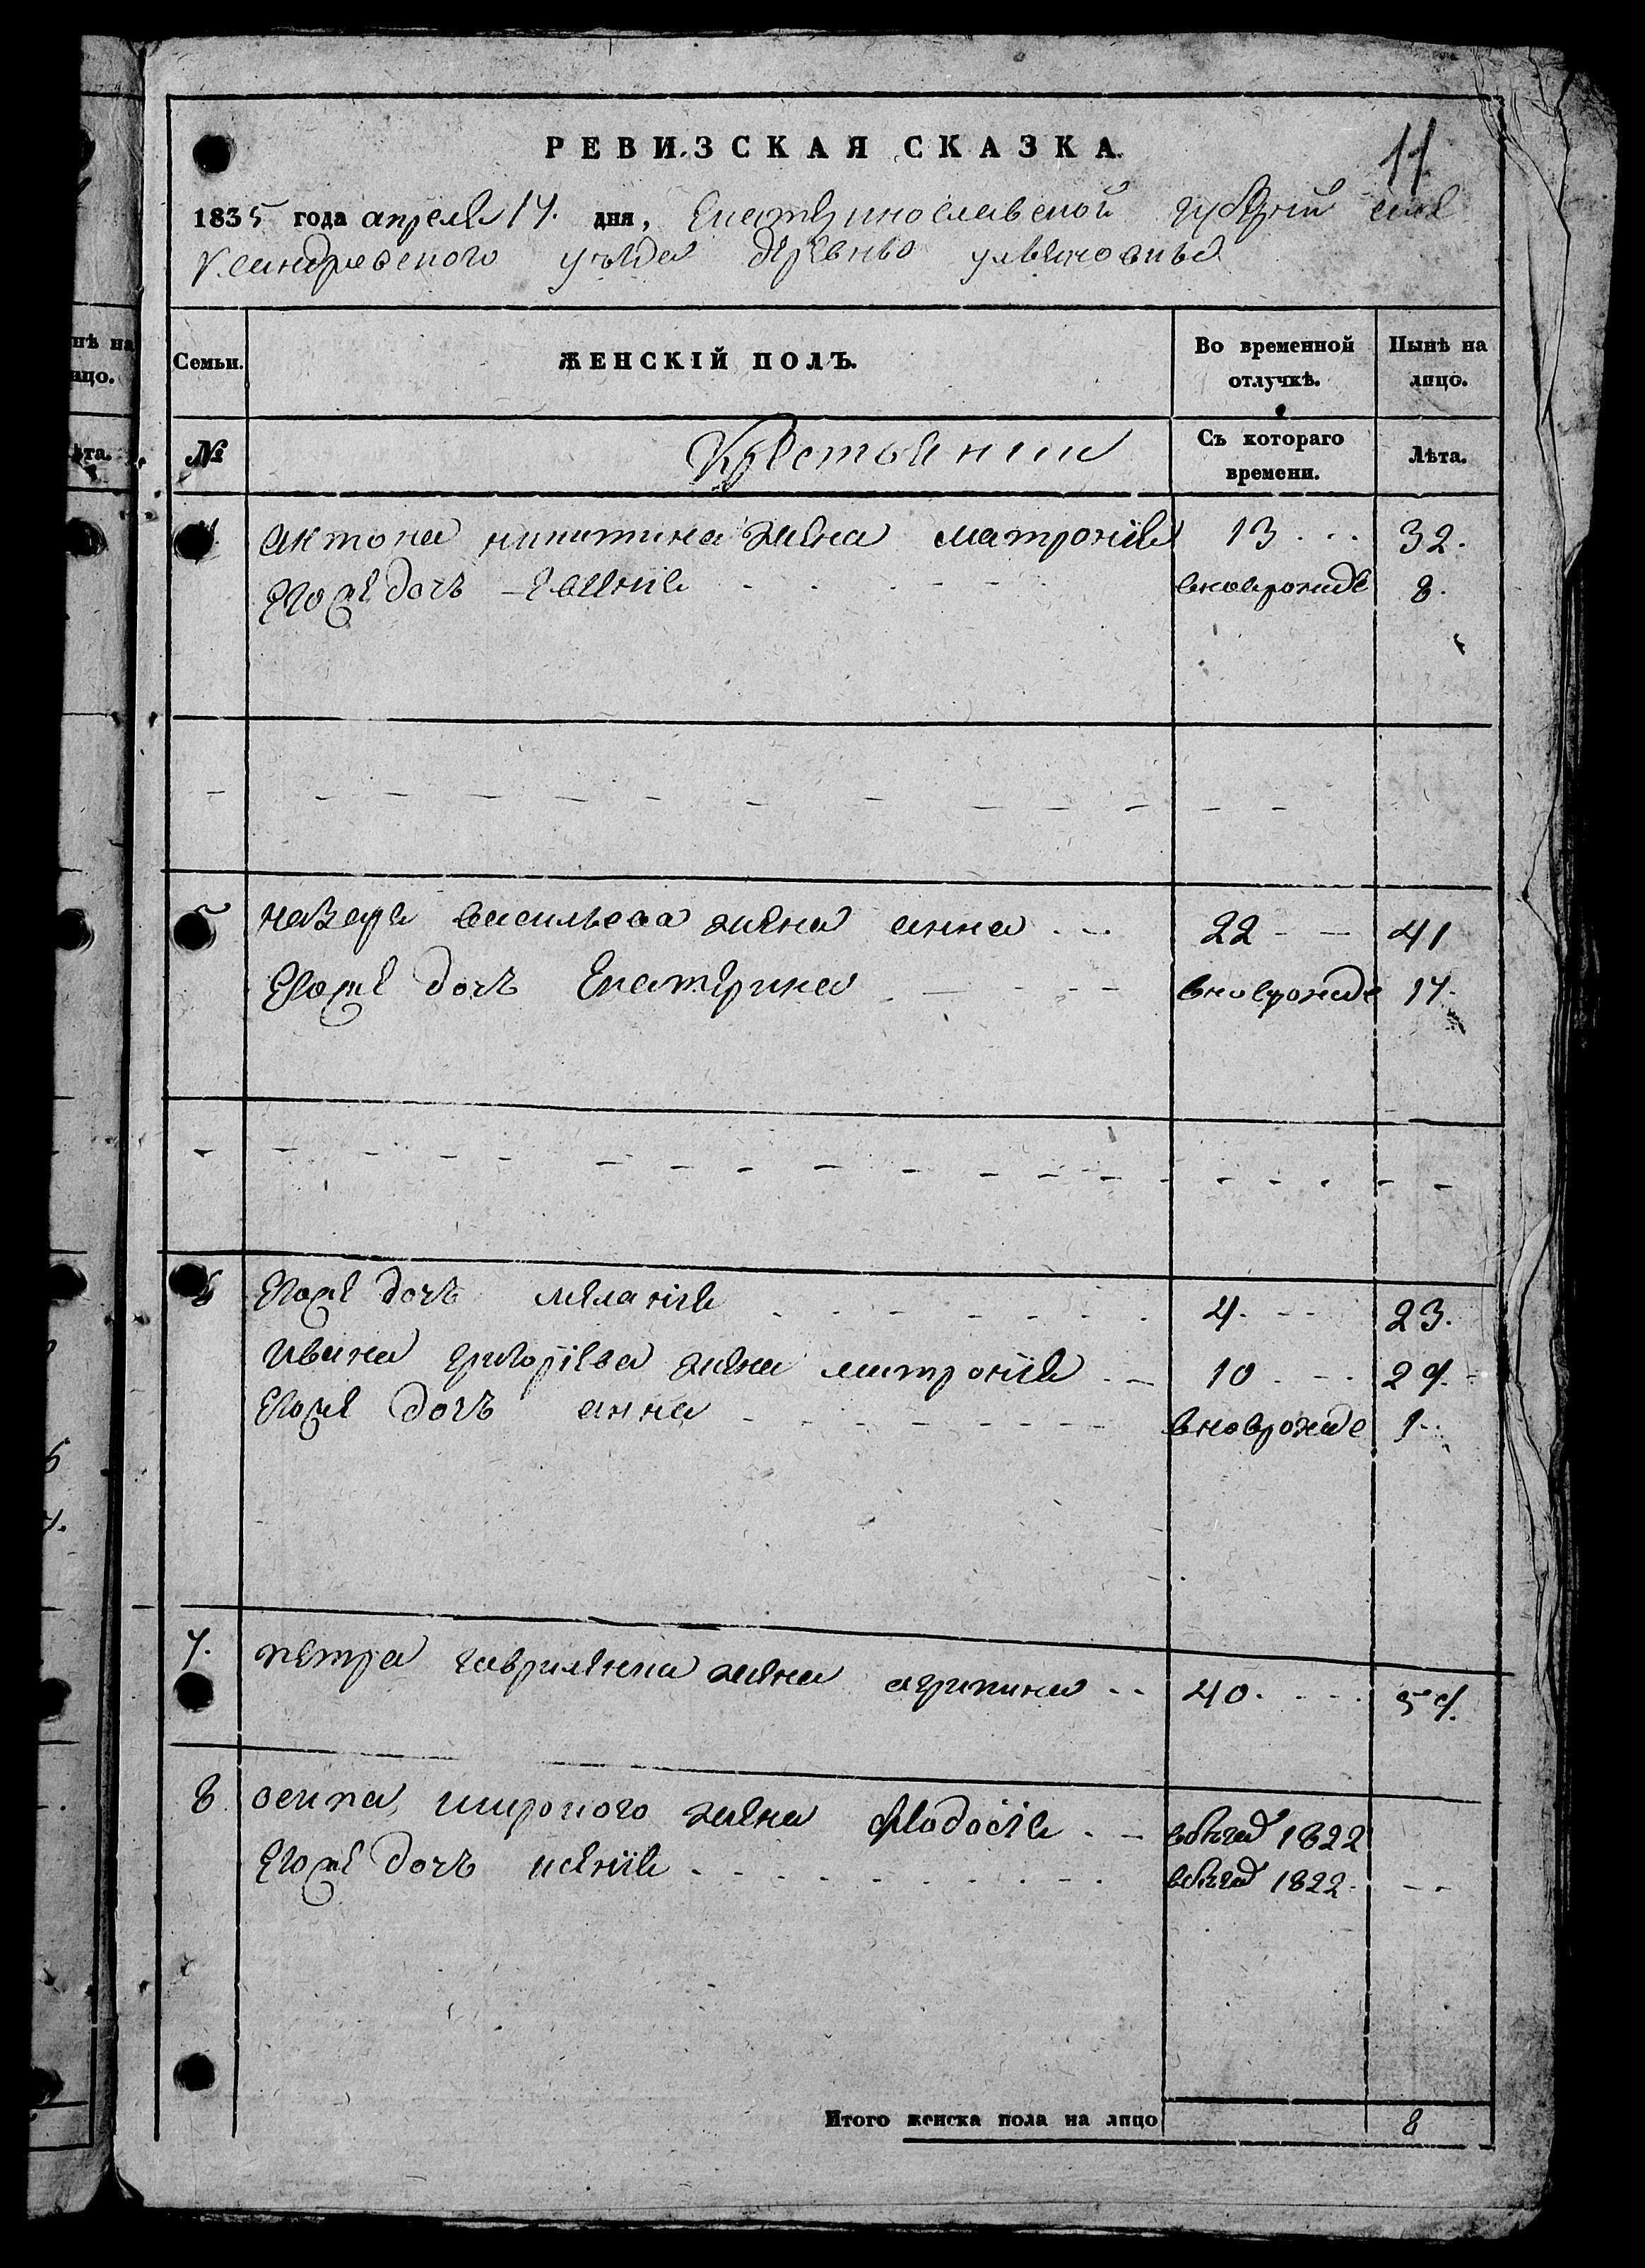 11
РЕВИЗСКАЯ СКАЗКА.
1835 года апреля 14. дня, Екатеринославской губернии
уезда деревни
Семьи. ЖЕНСКІЙ ПОЛЪ. Во временной отлучкѣ. Нынѣ на лицо.
№ Крестьянки Съ котораго времени. Лѣта.
4 антона никитина жена матрония 13 32.
Его же дочь Евгения вновьрожде 8.
5 назара васильева жена анна 22 41
Его же дочь Екатерина вновьрожде 14.
6 Его же дочь мелания 4. 23.
ивана григоріева жена матрония 10 29.
Его же дочь анна вновьрожде 1.
7. петра гавриленка жена агрипина 40. 59.
8 осипа широкого жена Феодосія вбегах 1822
Его же дочь ксения вбегах 1822
Итого женска пола на лицо 8